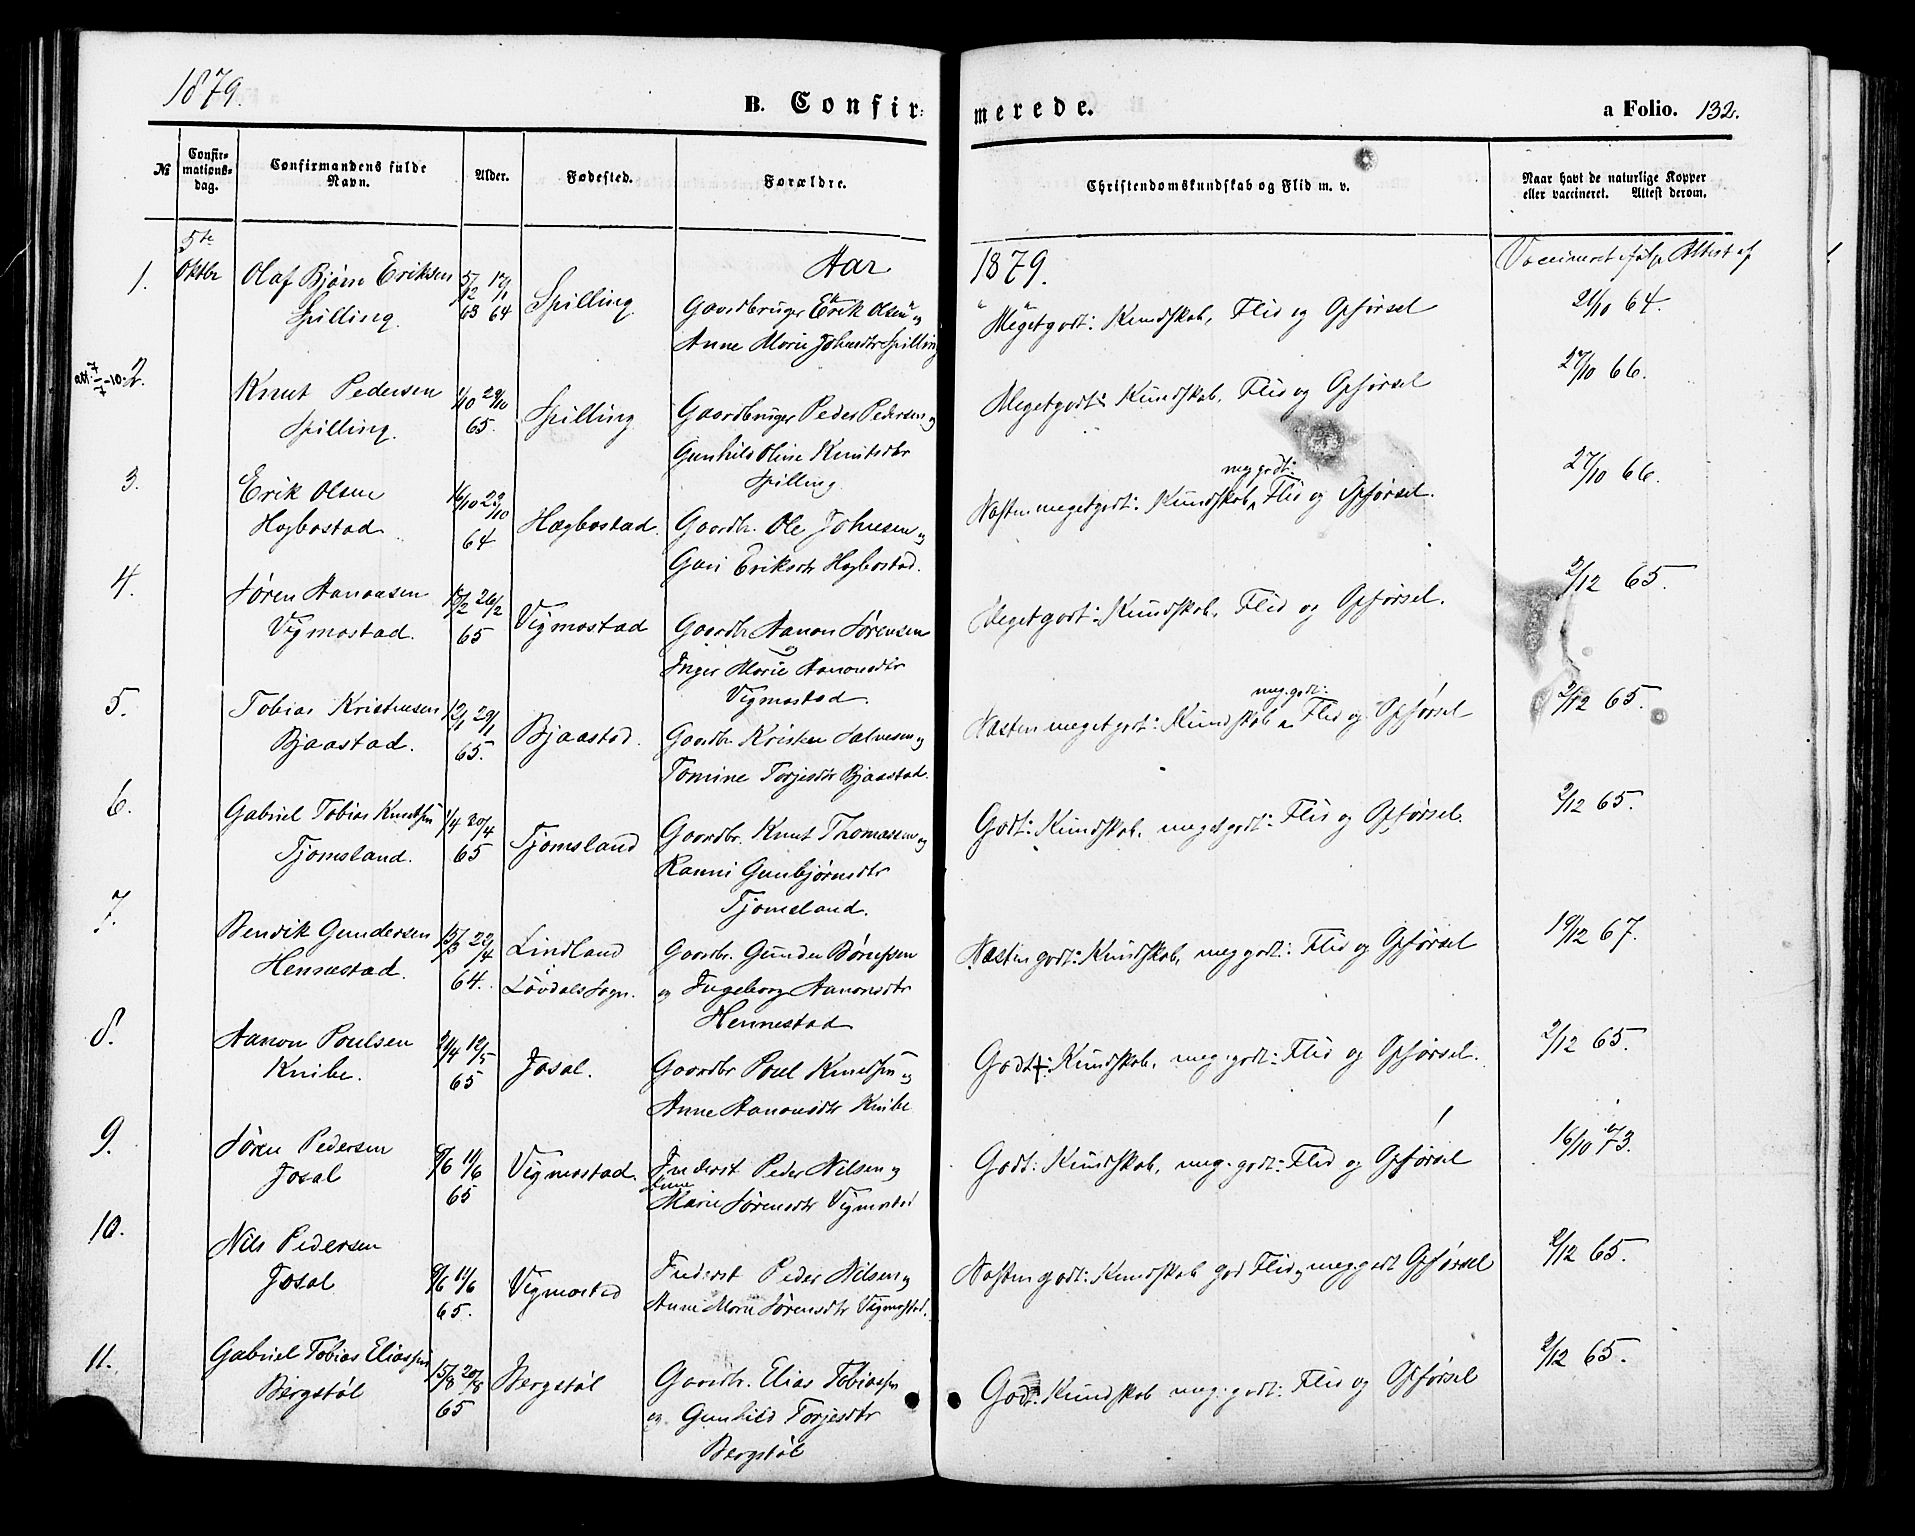 1879.
B. Confir-
merede.
a Folio. 132.
№
Confir-
mations-
dag.
Confirmandens fulde
Navn.
Alder.
Fødested.
Forældre.
Christendomskundskab og Flid m. v.
Naar havt de naturlige Kopper
eller vaccineret. Attest derom.
5te
Oktbr
Aar
1879.
Vaccineret ifølge Attest af
1.
Olaf Bjørn Eriksen
Spilling.
5/12 17/1
63 64
Spilling
Gaardbruger Erik Olsen og
Anne Marie Johnsdtr Spilling
Megetgodt: Kundskab, Flid og Opførsel
21/10 64.
att. 7-10-
2.
Knut Pedersen
Spilling.
1/10 29/10
65.
Spilling
Gaardbruger Peder Pedersen og
Gunhild Oline Knutsdtr
Spilling
Megetgodt: Kundskab, Flid og Opførsel
27/10 66.
3.
Erik Olsen
Hægbostad
16/10 23/10
64
Hægbostad.
Gaardbr. Ole Johnsen og
Guri Eriksdtr Hægbostad.
Næsten megetgodt: Kundskab, meg godt: Flid og Opførsel.
27/10 66.
4.
Søren Aanonsen
Vigmostad.
13/2 26/2
65
Vigmostad
Gaardbr Aanon Sørensen
og
Inger Marie Aanonsdtr
Vigmostad.
Megetgodt: Kundskab, Flid og Opførsel.
2/12 65.
5.
Tobias Kristensen
Bjaastad.
12/1 29/1
65.
Bjaastad.
Gaardbr Kristen Salvesen og
Tomine Torjesdtr Bjaastad.
Næsten megetgodt: Kundskab meg. godt: Flid og Opførsel
2/12 65.
6.
Gabriel Tobias Knudsen
Tjomsland.
1/4 30/4
65
Tjomsland
Gaardbr. Knut Thomassen og
Ranni Gunbjørnsdtr
Tjomsland.
Godt: Kundskab, megetgodt: Flid og Opførsel.
2/12 65.
7.
Bendik Gundersen
Hennestad.
13/3 23/4
64.
Lindland
Løvdals Sogn.
Gaardbr. Gunder Børufsen
og Ingeborg Aanonsdtr
Hennestad
Næsten godt: Kundskab, meg godt: Flid og Opførsel
19/12 67.
8.
Aanon Poulsen
Knibe.
21/4 12/5
65
Josal.
Gaardbr Poul Knudsen og
Anne Aanonsdtr Knibe
Godt+: Kundskab, meg. godt: Flid og Opførsel.
2/12 65.
9.
Søren Pedersen
Josal
8/6 11/6
65
Vigmostad.
Inderst Peder Nilsen og
Anne
Marie Sørensdtr Vigmostad
Godt: Kundskab, meg. godt: Flid og Opførsel
16/10 73.
10.
Nils Pedersen
Josal
8/6 11/6
65.
Vigmostad
Inderst Peder Nilsen og
Anne Marie Sørensdtr Vigmostad.
Næsten godt: Kundskab god Flid og meg godt Opførsel
2/12 65.
11.
Gabriel Tobias Eliassen
Bergstøl
15/8 20/8
65
Bergstøl
Gaardbr. Elias Tobiassen
og Gunhild Torjesdtr
Bergstøl
Godt: Kundskab meg. godt: Flid og Opførsel
2/12 65.